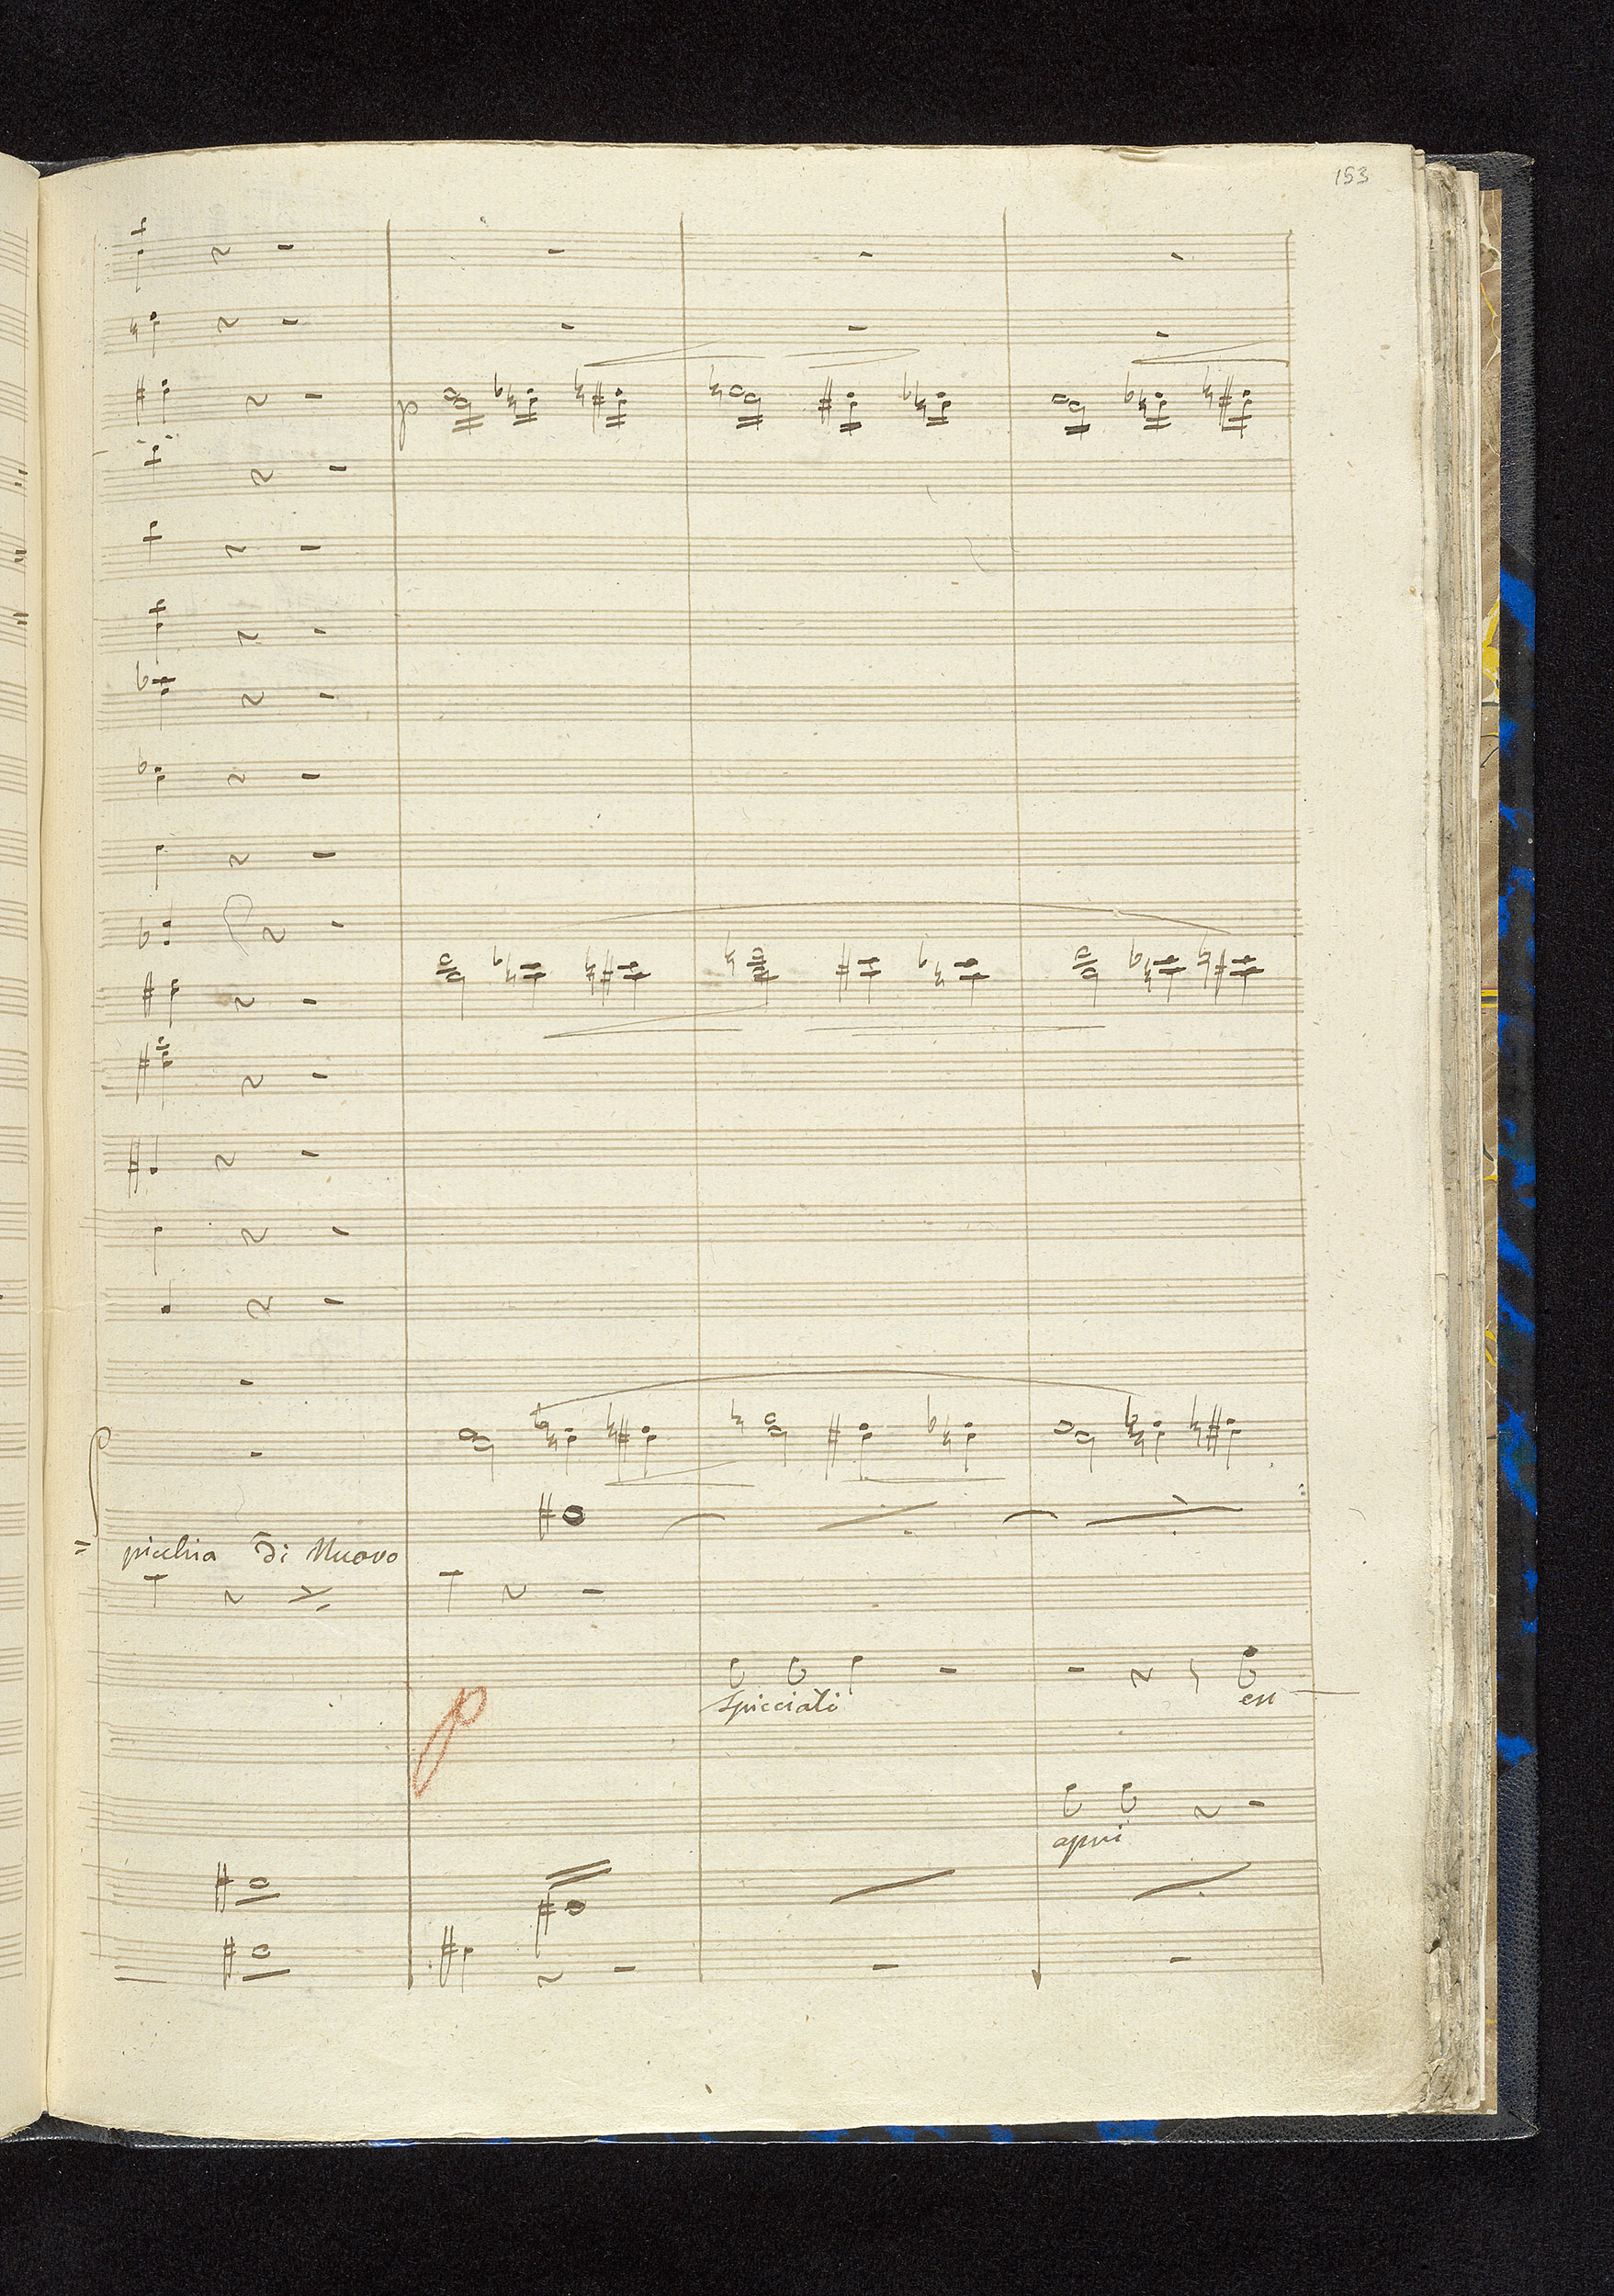 153
p
picchia di Nuovo
p
spicciati
en
apri